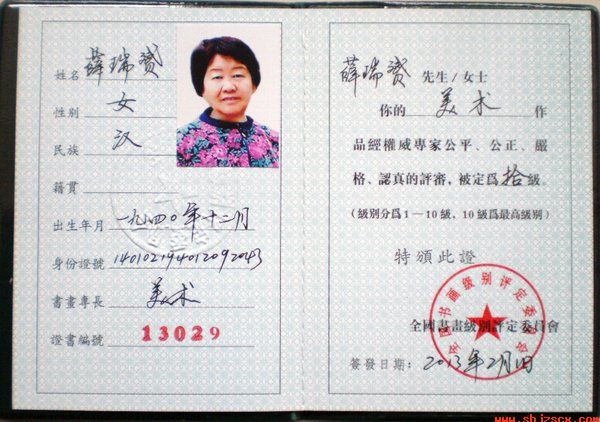 姓名 薛瑞赟
性别 女
民族 汉
籍貫
出生年月 一九四〇年十二月
身份證號
書畫專長 美术
證書編號 13029
薛瑞赟 先生/女士
你的 美术 作
品經權威專家公平、公正、嚴
格、認真的評審，被定爲拾級。
(級别分爲1—10級，10級爲最高級别)
特頒此證
全國書畫級别評定委員會
簽發日期： 2013年2月1日
全国书画级别评定委员会
www.shjzscx.com